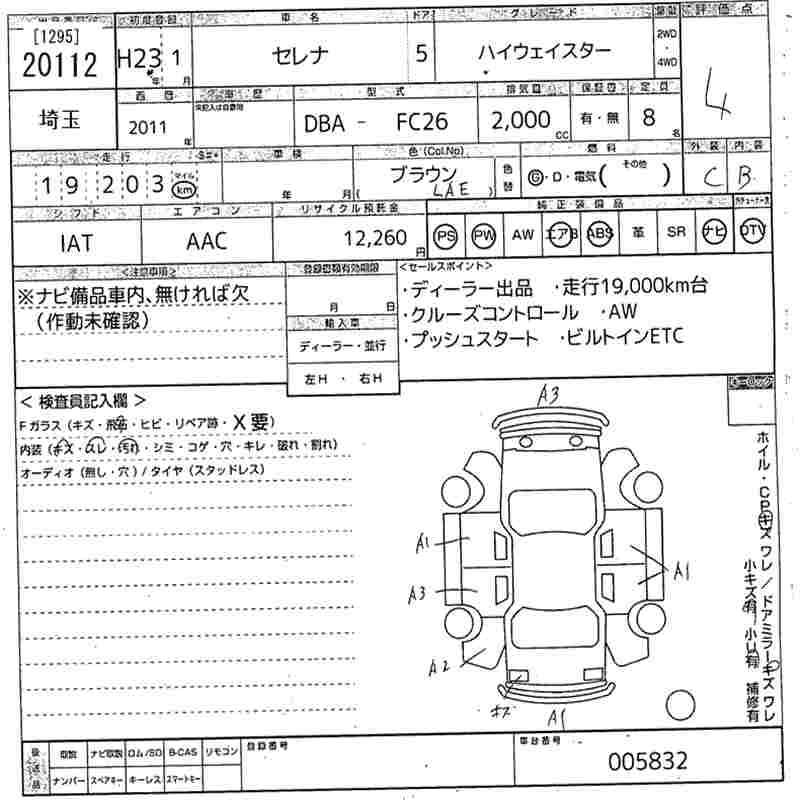 [1295]
20112
初度登録 車名 ドア グレード 評価点
H23 1 セレナ 5 ハイウェイスター
年 月
2WD
・
4WD
4
埼玉
西暦 車歴 型式 排気量 保証書 定員
2011 年
DBA - FC26
2,000 CC
有・無
8 名
走行 車検 色(Col.No) 燃料 外装 内装
19203 マイル km
年 月
ブラウン
( LAE )
色替
G・D・電気( その他 )
C B
シフト エアコン リサイクル預託金 純正装備品
IAT AAC 12,260 円
PS PW AW エアB ABS 革 SR ナビ DTV
<注意事項>
※ナビ備品車内、無ければ欠
(作動未確認)
登録書類有効期限
月 日
輸入車
ディーラー・並行
左H ・ 右H
<セールスポイント>
・ディーラー出品 ・走行19,000km台
・クルーズコントロール ・AW
・プッシュスタート ・ビルトインETC
< 検査員記入欄 >
Fガラス(キズ・飛石・ヒビ・リペア跡・X要)
内装(キズ・スレ・汚れ・シミ・コゲ・穴・キレ・破れ・割れ)
オーディオ(無し・穴)/タイヤ(スタッドレス)
A3
A1
A3
A2
A1
キズ
A1
ホイル・CPキズ ワレ/ドアミラーキズ ワレ
小キズ有 小U有 補修有
後送品
取説 ナビ取説 ロム/SD B-CAS リモコン
ナンバー スペアキー キーレス スマートキー
登録番号
車台番号
005832